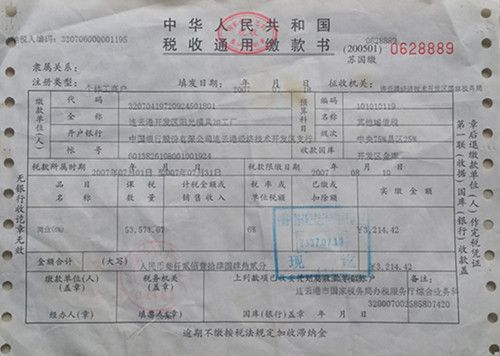 中华人民共和国
纳税人编码: 320706000001195
税收通用缴款书
(200501) 0628889
0628889
苏国缴
隶属关系:
注册类型: 个体工商户 填发日期: 2007 年 月 日 征收机关: 连云港经济技术开发区国家税务局
缴款单位(人)
代码 32070419720924501801 预算科目 编码 101010119
全称 连云港开发区阳光模具加工厂 名称 其他增值税
开户银行 中国银行股份有限公司连云港经济技术开发区支行 级次 中央75%县区25%
帐号 收款国库 开发区金库
税款所属时期 2007年07月01日 2007年07月31日 税款限缴日期 2007 年 08 月 10 日
品目名称 课税数量 计税金额或销售收入 税率或单位税额 已缴或扣除额 实缴金额
商业(6%) 53,573.67 6% ¥3,214.42
2007.07.18
现
金额合计 (大写) 人民币叁仟贰佰壹拾肆圆肆角贰分 ¥3,214.42
缴款单位(人)(盖章) 税务机关(盖章) 上列款项已收妥并划转收款单位帐户 备注:
连云港市国家税务局办税服务厅综合业务科
经办人(章) 填票人(章) 国库(银行)盖章 年 月 日 320007002585807420
逾期不缴按税法规定加收滞纳金
无银行收讫章无效
第一联(收据)国库(银行)收款盖
章后退缴款单位(人)作完税凭证